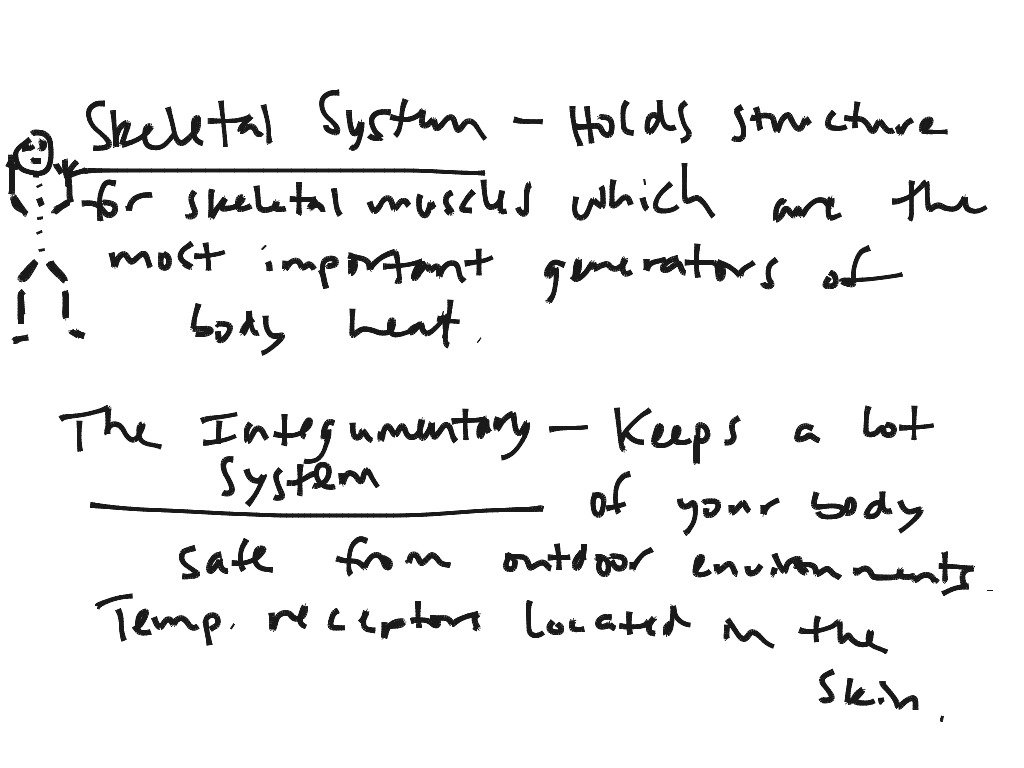 Skeletal System - Holds structure
for skeletal muscles which are the
most important generators of
body heat.
The Integumentary - Keeps a lot
System
of your body
safe from outdoor environments.
Temp. receptors located in the
skin.